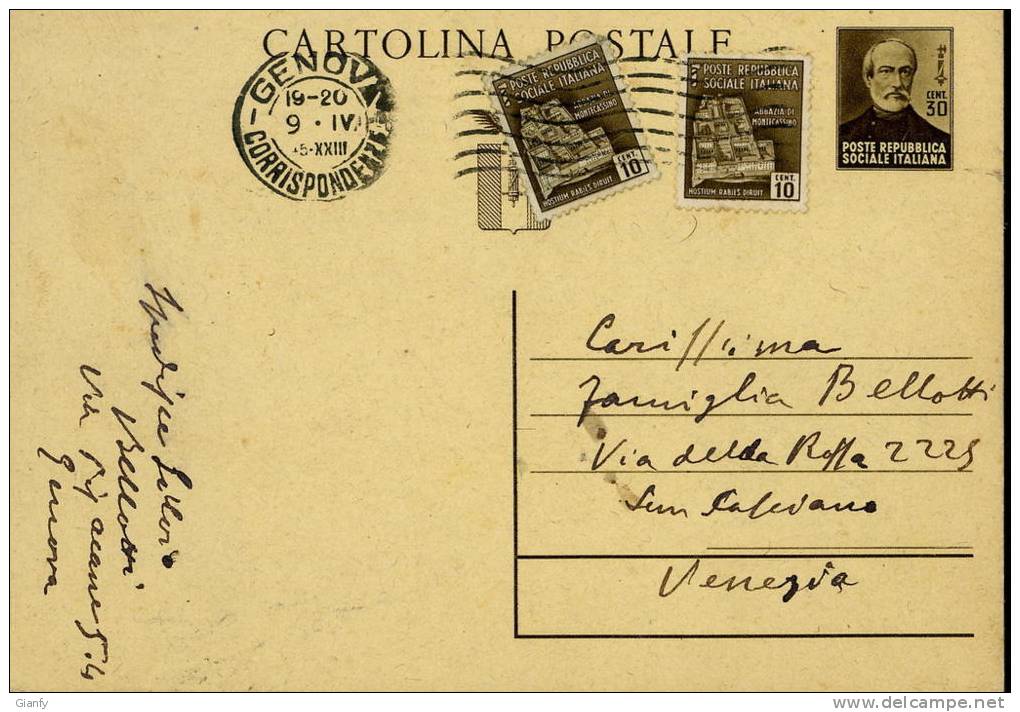 CARTOLINA POSTALE
GENOVA
19-20
9 · IV
45-XXIII
CORRISPONDENZE
POSTE REPUBBLICA
SOCIALE ITALIANA
ABBAZIA DI
MONTECASSINO
CENT.
10
HOSTIUM RABIES DIRUIT
POSTE REPUBBLICA
SOCIALE ITALIANA
ABBAZIA DI
MONTECASSINO
CENT.
10
HOSTIUM RABIES DIRUIT
CENT.
30
POSTE REPUBBLICA
SOCIALE ITALIANA
Carissima
Famiglia Bellotti
Via della Rossa 2225
San Casciano
Venezia
Bellotti
Via
Genova
Gianfy
delcampe.net